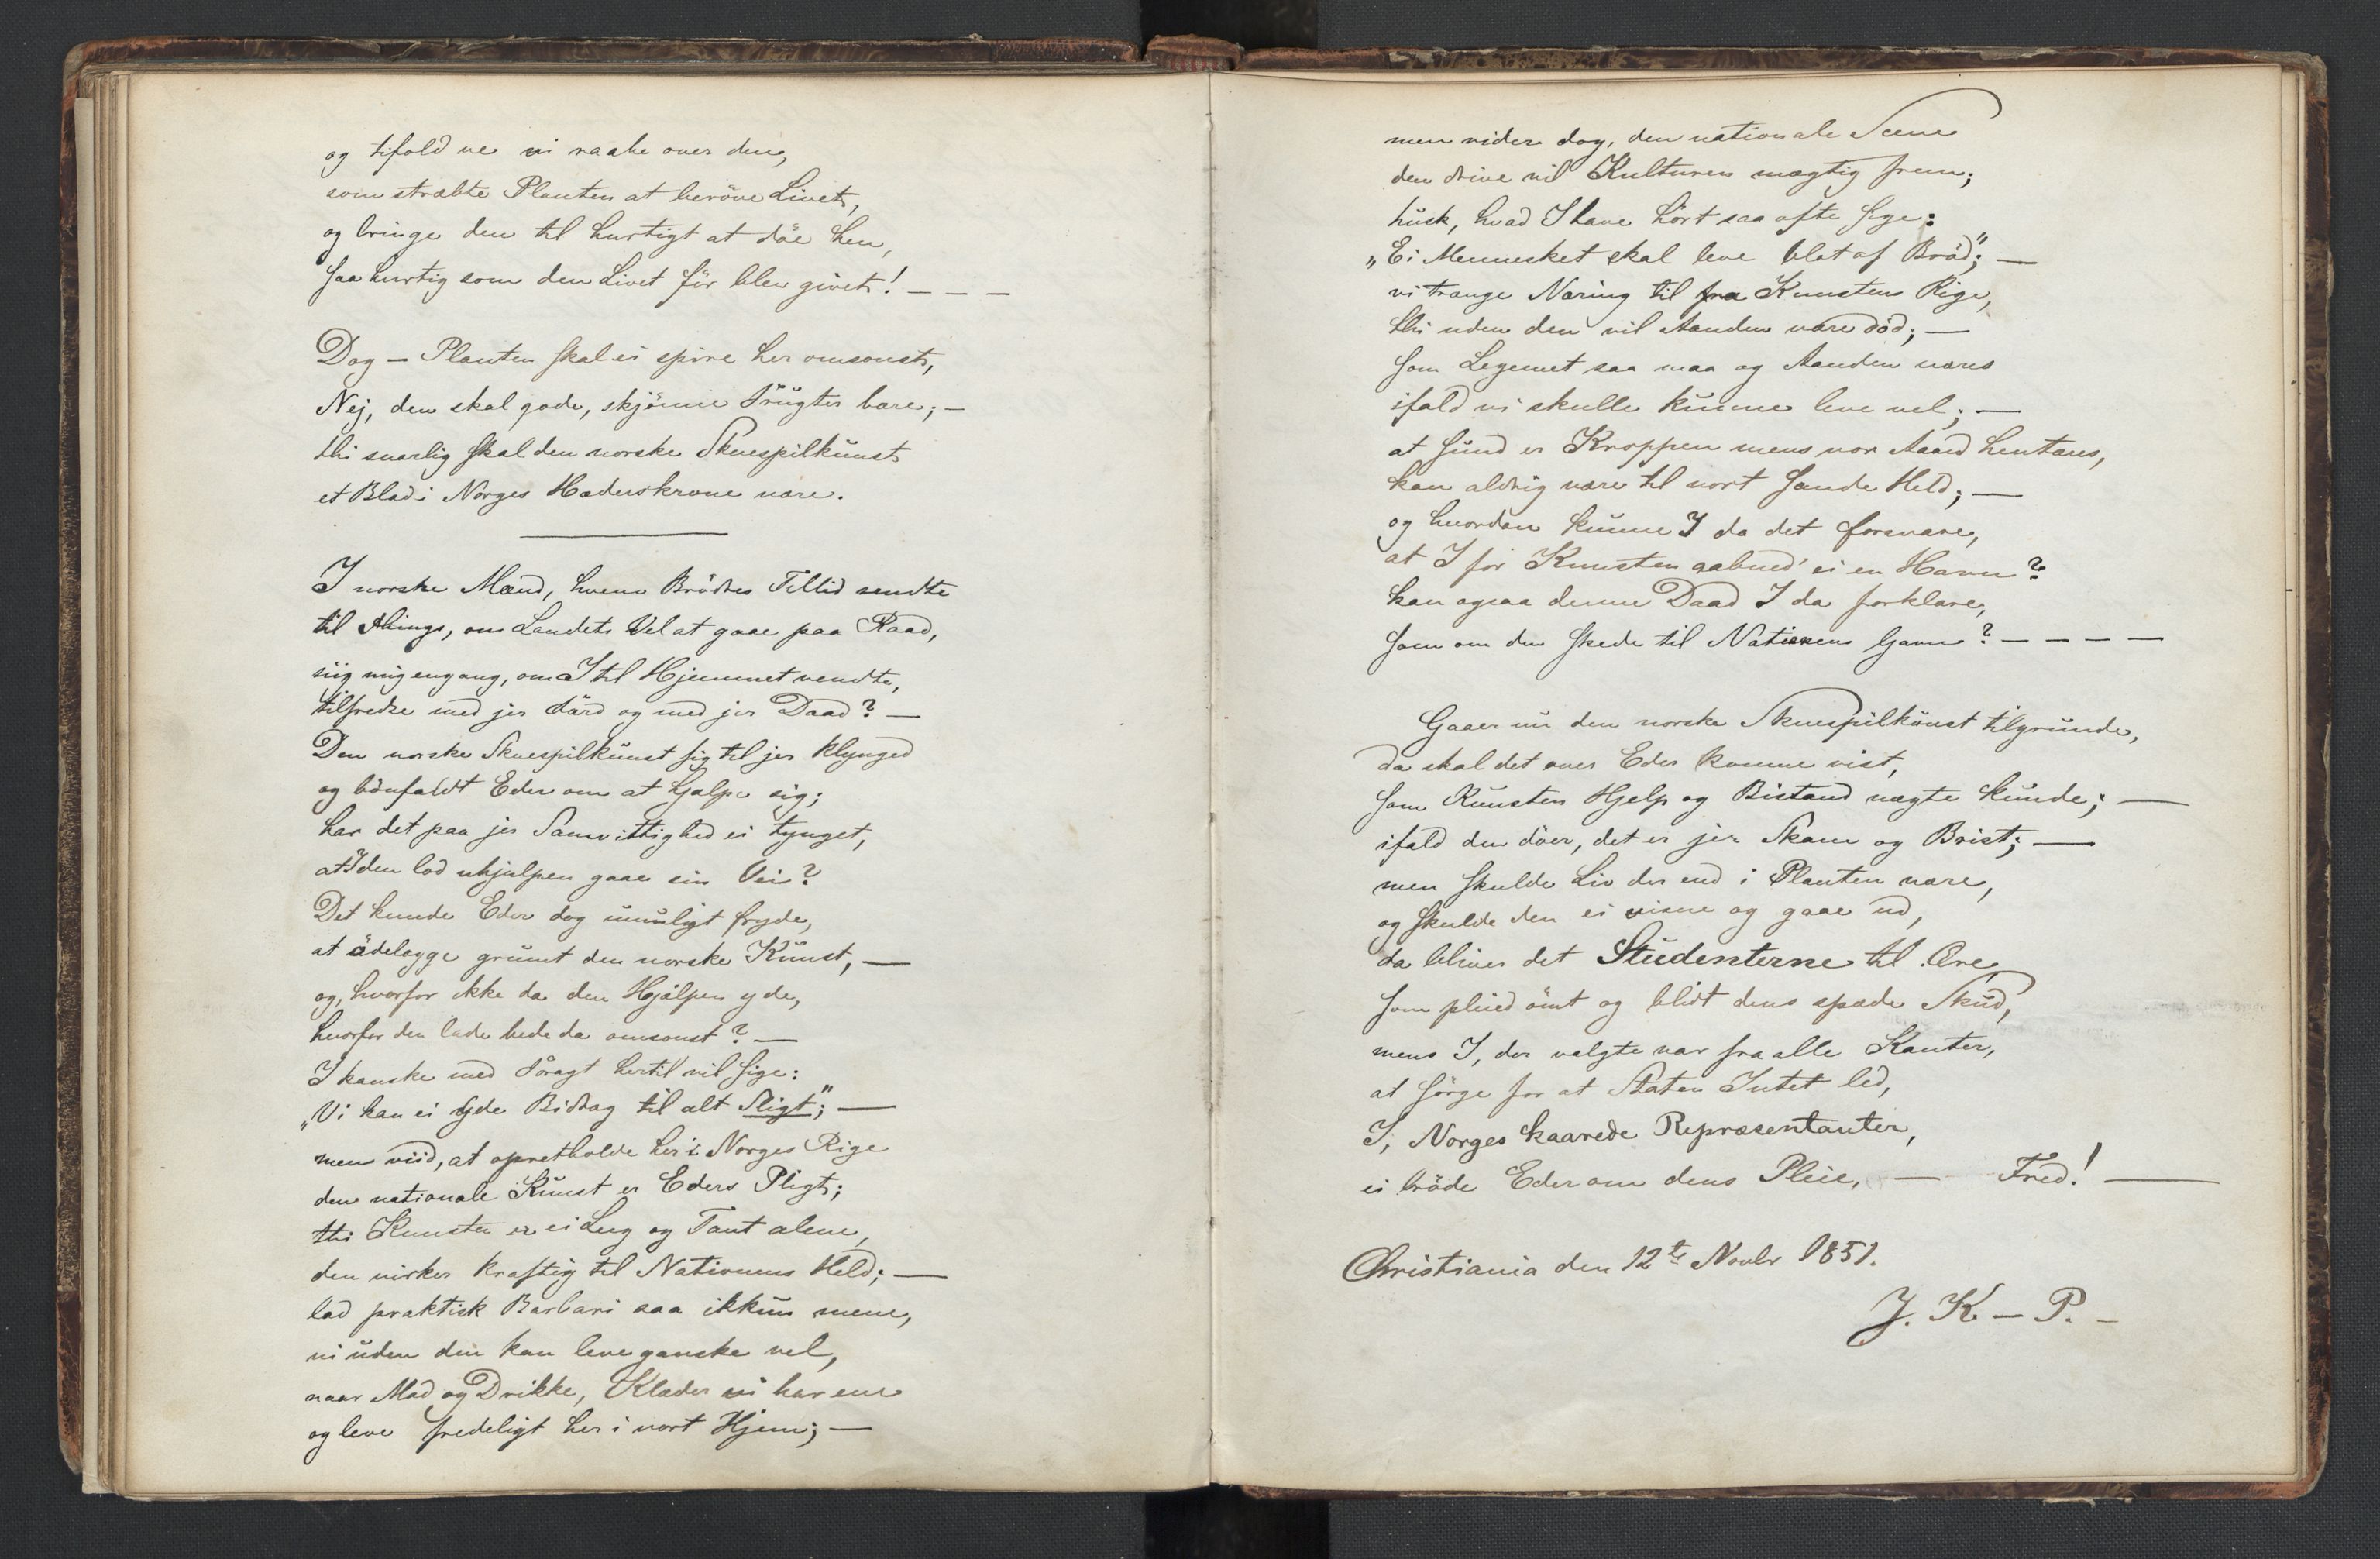 og tifold ve vi raabe over den,
som stræbte Planten at beröve Livet,
og bringe den til hurtigt at döe hen,
saa hurtig som den Livet för blev givet! — — —
Dog — Planten skal ei spire her omsonst,
Nej, den skal gode, skjönne Frugter bære; —
thi snarlig skal den norske Skuespilkunst
et Blad i Norges Hæderskrone være.
I norske Mænd, hvem Brödres Tillid sendte
til Things, om Landets Vel at gaae paa Raad,
siig mig engang, om I til Hjemmet vendte,
tilfredse med jer Färd og med jer Daad? —
Den norske Skuespilkunst sig til jer klynged
og bönfaldt Eder om at hjælpe sig;
har det paa jer Samvittighed ei tynget,
at I den lod uhjulpen gaae sin Vei?
Det kunde Eder dog umuligt fryde,
at ödelægge grumt den norske Kunst, —
og, hvorfor ikke da den Hjälpen yde,
hvorfor den lade bede da omsonst? —
I kanske med Foragt hertil vil sige:
„Vi kan ei yde Bidrag til alt Sligt“; —
men viid, at opretholde her i Norges Rige
den nationale Kunst er Eders Pligt;
thi Kunsten er ei Leeg og Tant alene,
den virker kraftig til Nationens Held; —
lad praktisk Barbari saa ikkun mene,
vi uden den kan leve ganske vel,
naar Mad og Drikke, Klæder vi har ene
og leve fredeligt her i vort Hjem; —
men vider dog, den nationale Scene
den drive vil Kulturen mægtig frem;
husk, hvad I have hört saa ofte sige:
„Ei Mennesket skal leve blot af Bröd“; —
vi trænge Næring til fra Kunstens Rige,
thi uden den vil Aanden være död; —
som Legemet saa maa og Aanden næres
ifald vi skulle kunne leve vel; —
at sund er Kroppen mens vor Aand hentæres,
kan aldrig være til vort sande Held; —
og hvordan kunne I da det forsvare,
at I for Kunsten aabned' ei en Havn?
kan ogsaa denne Daad I da forklare,
som om den skede til Nationens Gavn? — — — —
Gaaer nu den norske Skuespilkunst tilgrunde,
da skal det over Eder komme vist,
som Kunsten Hjelp og Bistand nægte kunde; —
ifald den döer, det er jer Skam og Brist; —
men skulde Liv der end i Planten være,
og skulde den ei visne og gaae ud,
da bliver det Studenterne til Ære,
som pleied ömt og blidt dens spæde Skud,
mens I, der valgte var fra alle Kanter,
at sörge for at Staten Intet led,
I, Norges kaarede Repræsentanter,
ei bröde Eder om dens Pleie, — Fred! —
Christiania den 12te Novbr 1851.
J. K — P. —